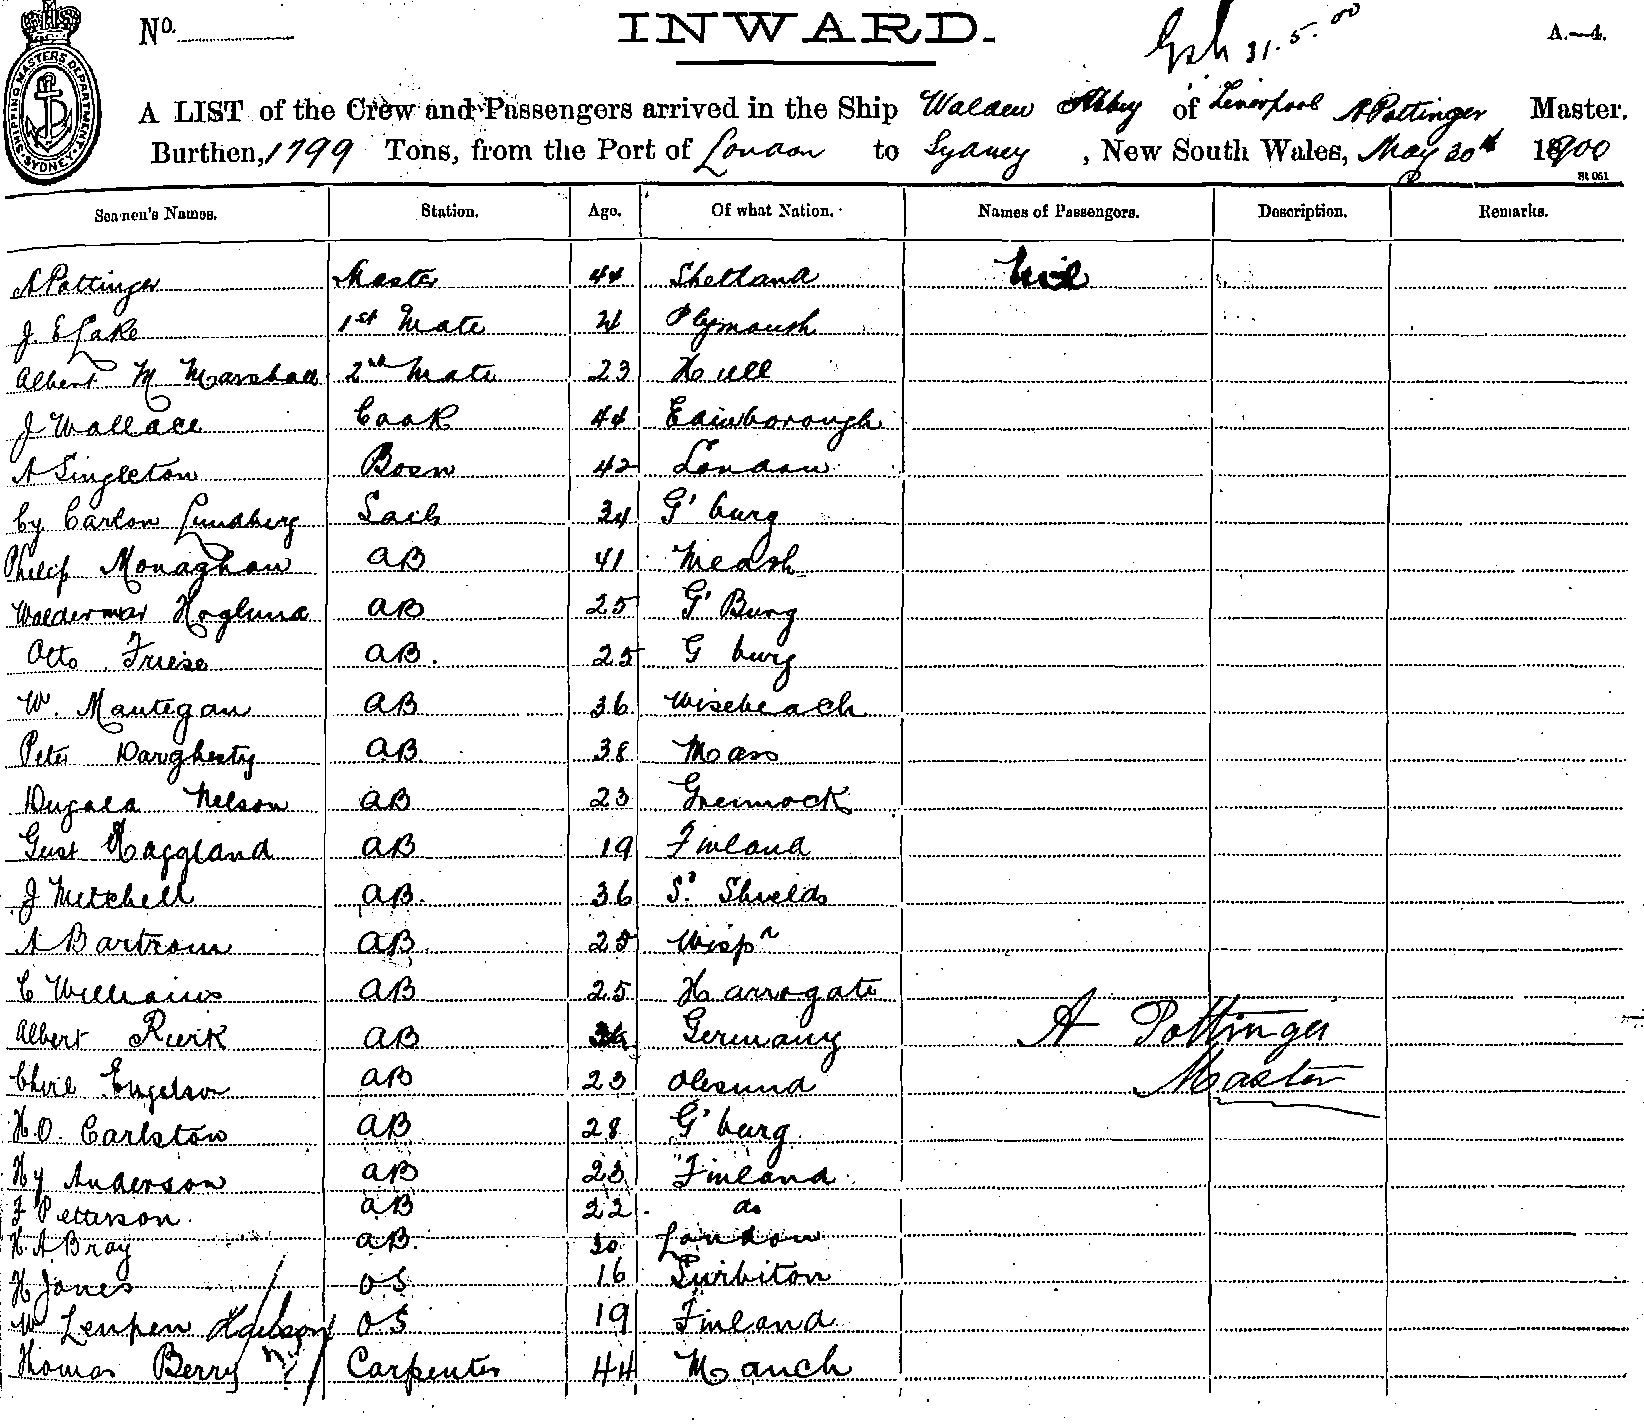 No.
INWARD.
31.5.00
A.—4.
SHIPPING MASTERS DEPARTMENT. SYDNEY.
A LIST of the Crew and Passengers arrived in the Ship Walden Abbey of Liverpool A Pottinger Master.
Burthen, 1799 Tons, from the Port of London to Sydney, New South Wales, May 30th 1900
St 061
Seamen's Names. Station. Age. Of what Nation. Names of Passengers. Description. Remarks.
A Pottinger Master 44 Shetland Nil
J. E Lake 1st Mate 21 Plymouth
Albert M Marshall 2nd Mate 23 Hull
J Wallace Cook 44 Edinborough
A Singleton Bosn 42 London
Cy Carlon Lundberg Sails 34 G' burg
Philip Monaghan AB 41 Meath
Waldermar Hoglund AB 25 G' Burg
Otto Friese AB. 25 G burg
W. Mantegan AB 36 Wisebeach
Peter Dargherty AB 38 Mass
Dugald Nelson AB 23 Greinock
Gust Haggland AB 19 Finland
J Mitchell AB. 36 S. Shields
A Bartrom AB. 25
C Williams AB 25 Harrogate
Albert Rurik AB Germany
A Pottinger
Engelson AB 23 Olesund
Master
H.O. Carlston AB 28 G' burg
Hy Anderson AB 23 Finland
F Petterson. AB 22 do
H A Bray AB. 20 London
H Jones OS 16 Surbiton
W Lenpen OS 19 Finland
Thomas Berry Carpenter 44 Manch